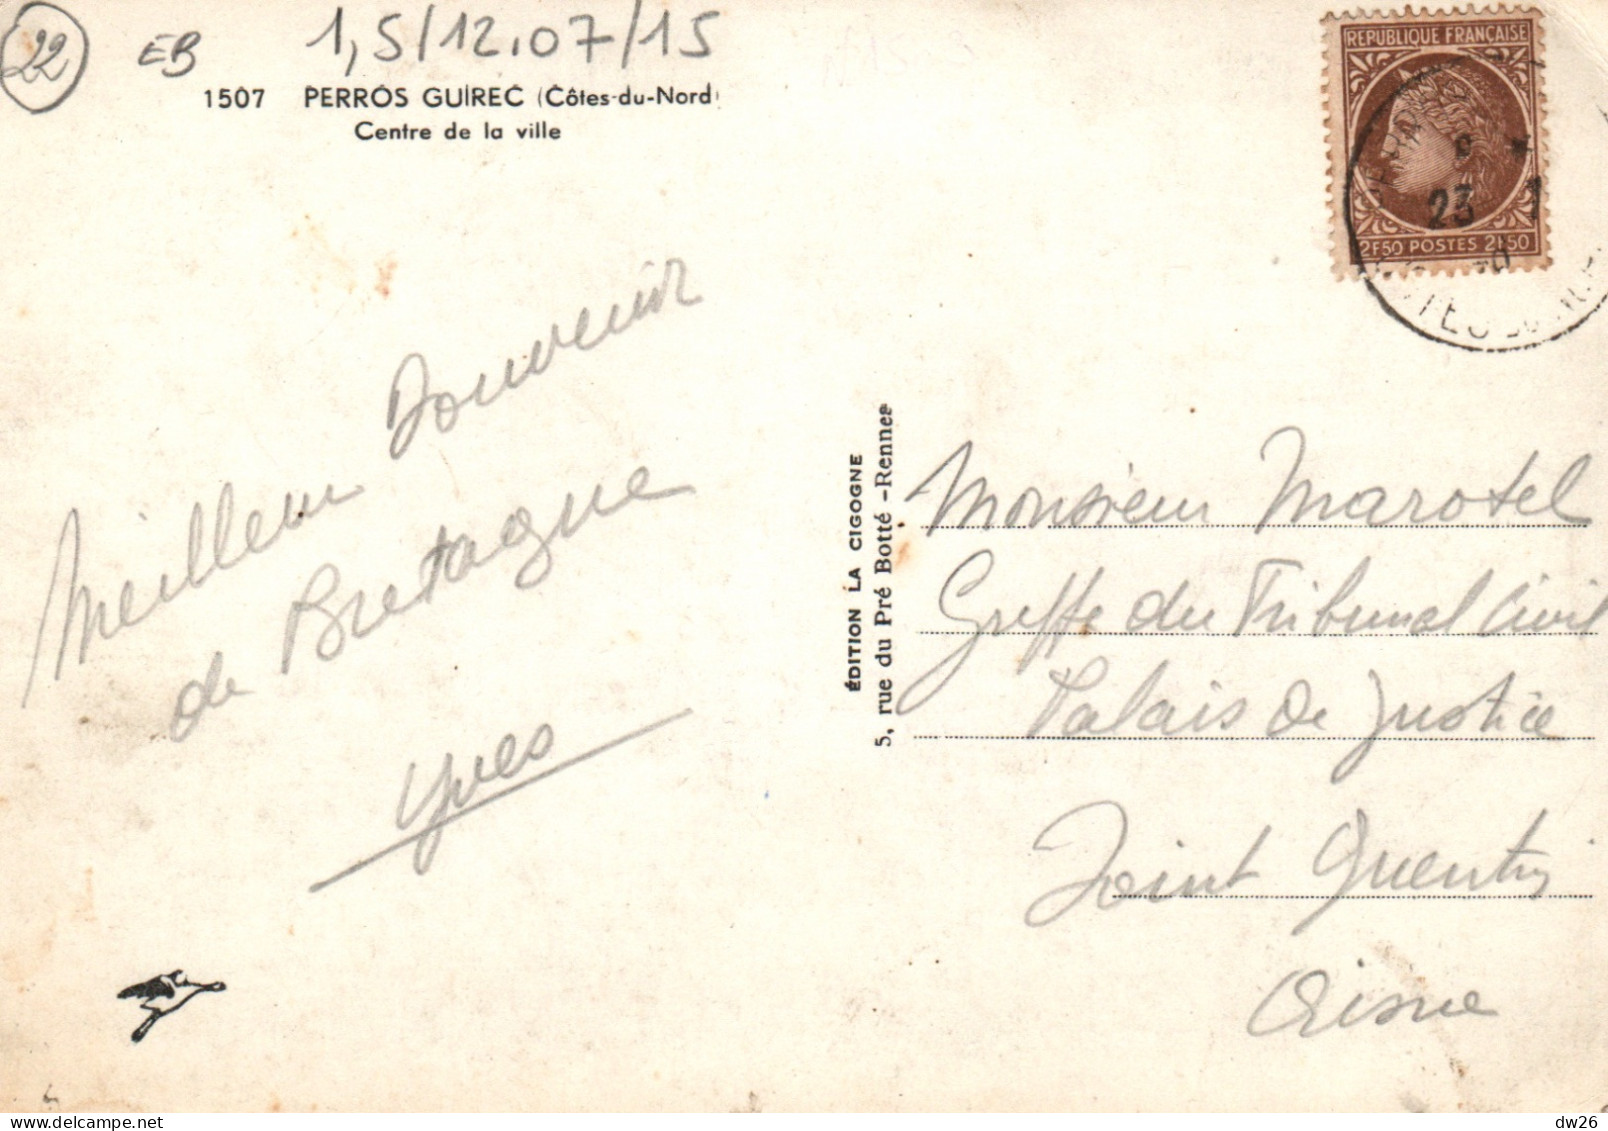 22
EB
1,5/12.07/15
1507 PERROS GUIREC (Côtes-du-Nord)
Centre de la ville
REPUBLIQUE FRANÇAISE
23 1
2F50 POSTES 2F50
Meilleur Souvenir
de Bretagne
Yves
ÉDITION LA CIGOGNE
5, rue du Pré Botté - Rennes
Monsieur Marotel
Greffe du Tribunal Civil
Palais de Justice
Saint Quentin
Aisne
dw26